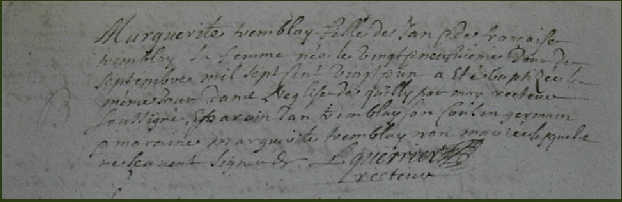 Marguerite tremblay fille de Jan & de francaise
tremblay sa femme née le vingt neufvieme Jour de
septembre mil sept cent vingt un a eté baptizée le
même Jour dans l'eglise de par moy recteur
soussigné, parain Jan tremblay son cousin germain
& maraine marguerite tremblay non mariée lesquels
ne scavent signer &
L guerrier
recteur